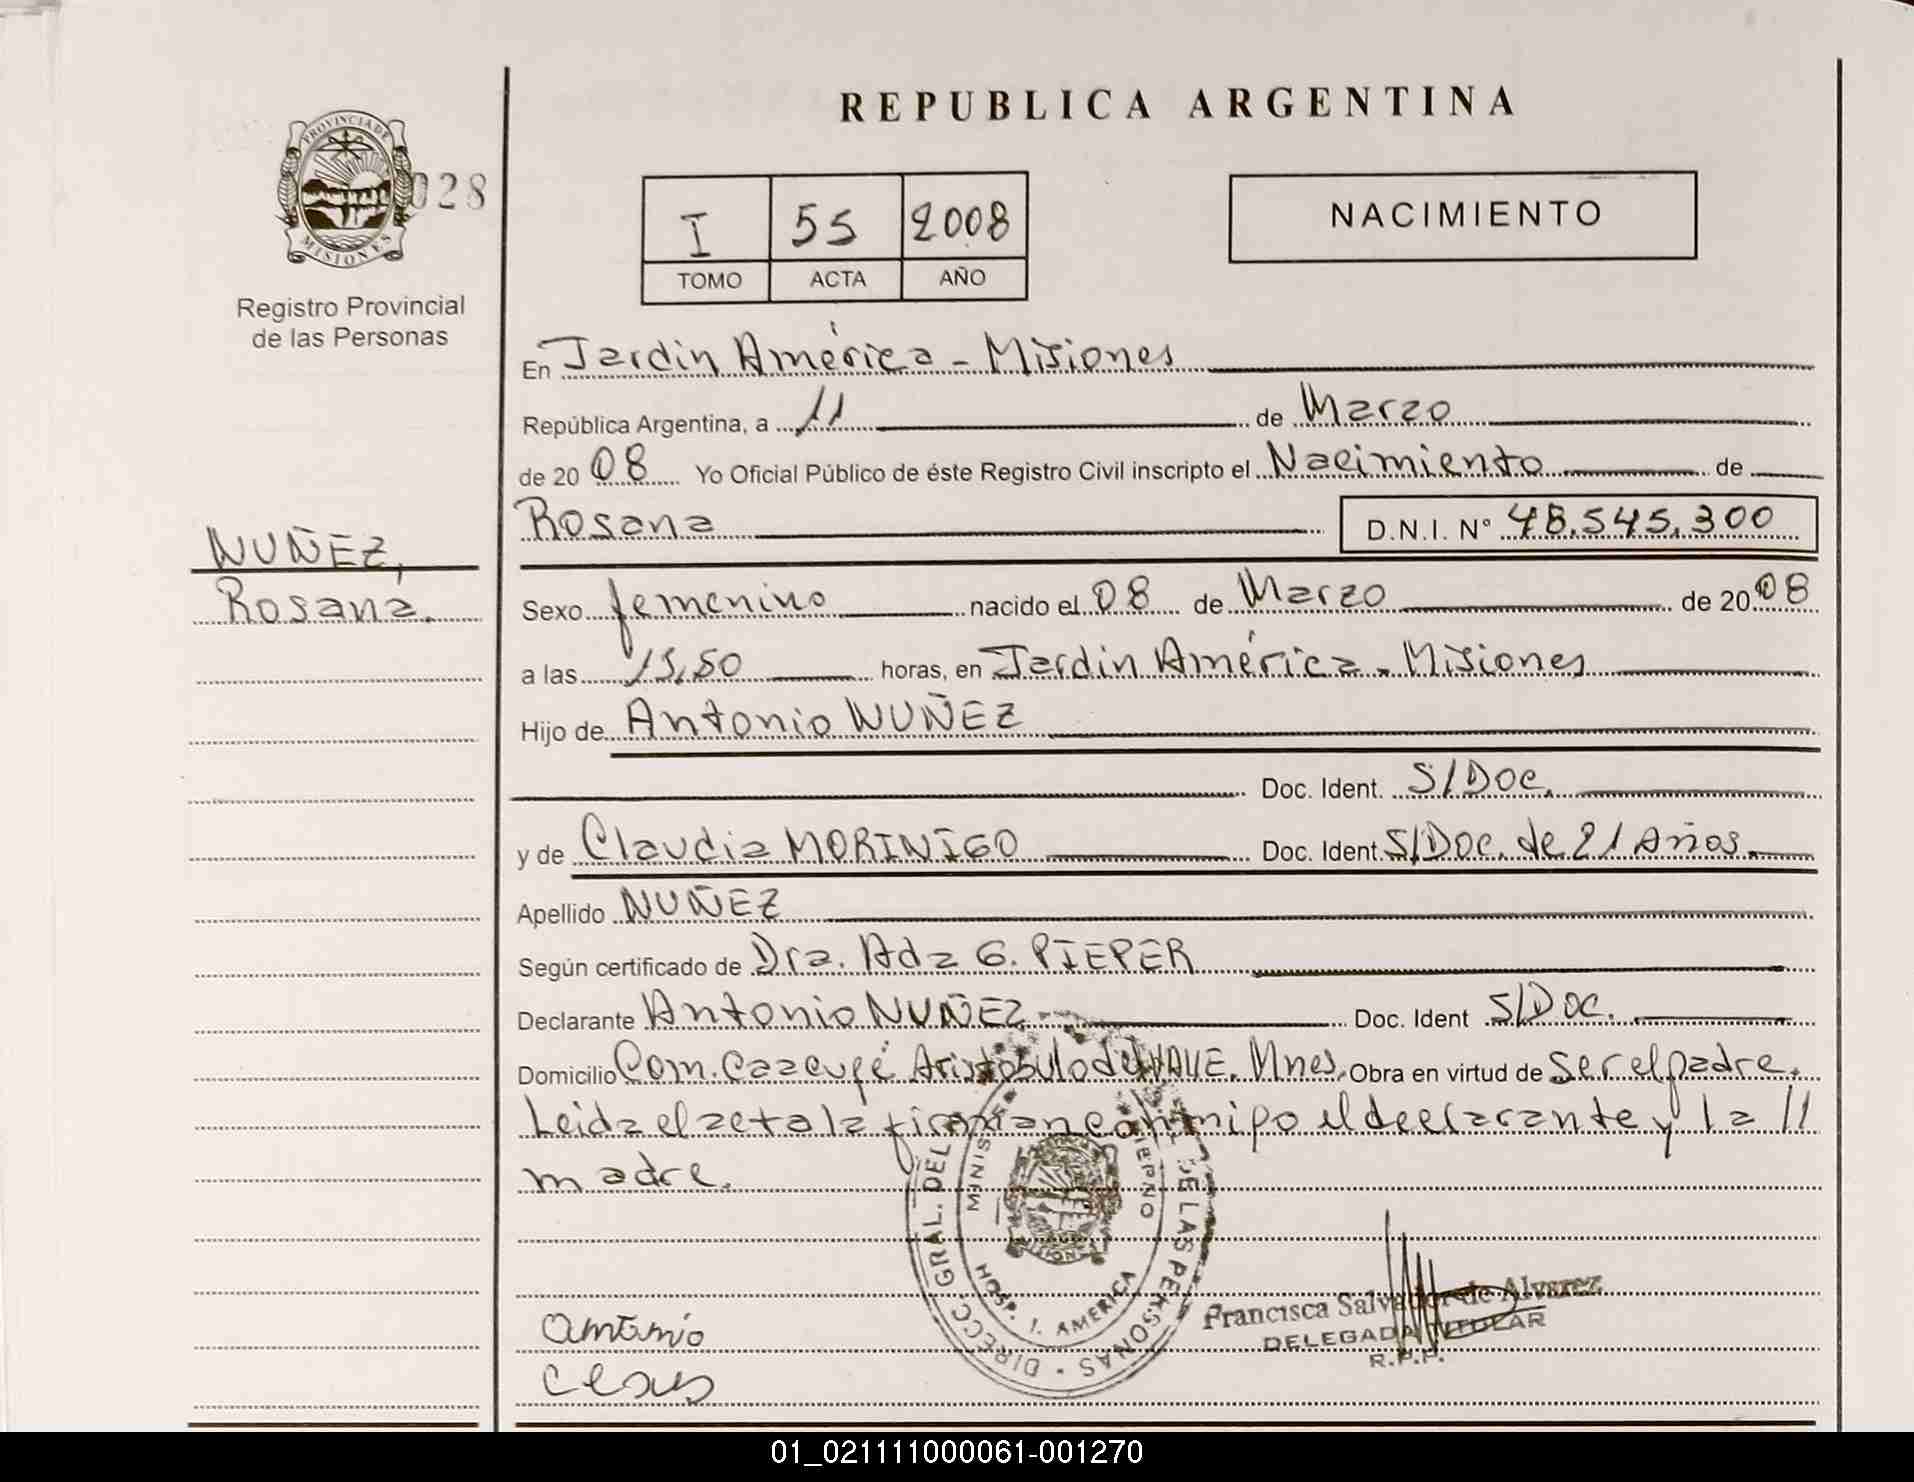 REPUBLICA ARGENTINA
PROVINCIA DE
MISIONES
028
Registro Provincial
de las Personas
I 55 2008
TOMO ACTA AÑO
NACIMIENTO
En Jardin América - Misiones
República Argentina, a 11 de Marzo
de 2008 Yo Oficial Público de éste Registro Civil inscripto el Nacimiento de
Rosana D.N.I. N° 48.545.300
NUÑEZ,
Rosana.
Sexo femenino nacido el 08 de Marzo de 2008
a las 15,50 horas, en Jardin América - Misiones
Hijo de Antonio NUÑEZ
Doc. Ident. S/Doc.
y de Claudia MORINIGO Doc. Ident. S/Doc. de 21 Años.
Apellido NUÑEZ
Según certificado de Dra. Ada G. PIEPER
Declarante Antonio NUÑEZ Doc. Ident S/Doc.
Domicilio Com. Caacupé Aristóbulo del VALLE. Mnes. Obra en virtud de ser el padre.
Leida el acta la firman conmigo el declarante y la //
madre.
DIRECC. GRAL. DEL DE LAS PERSONAS
HOSP. J. AMERICA
Francisca Salvador de Alvarez
DELEGADA TITULAR
R.P.P.
Antonio
01_021111000061-001270